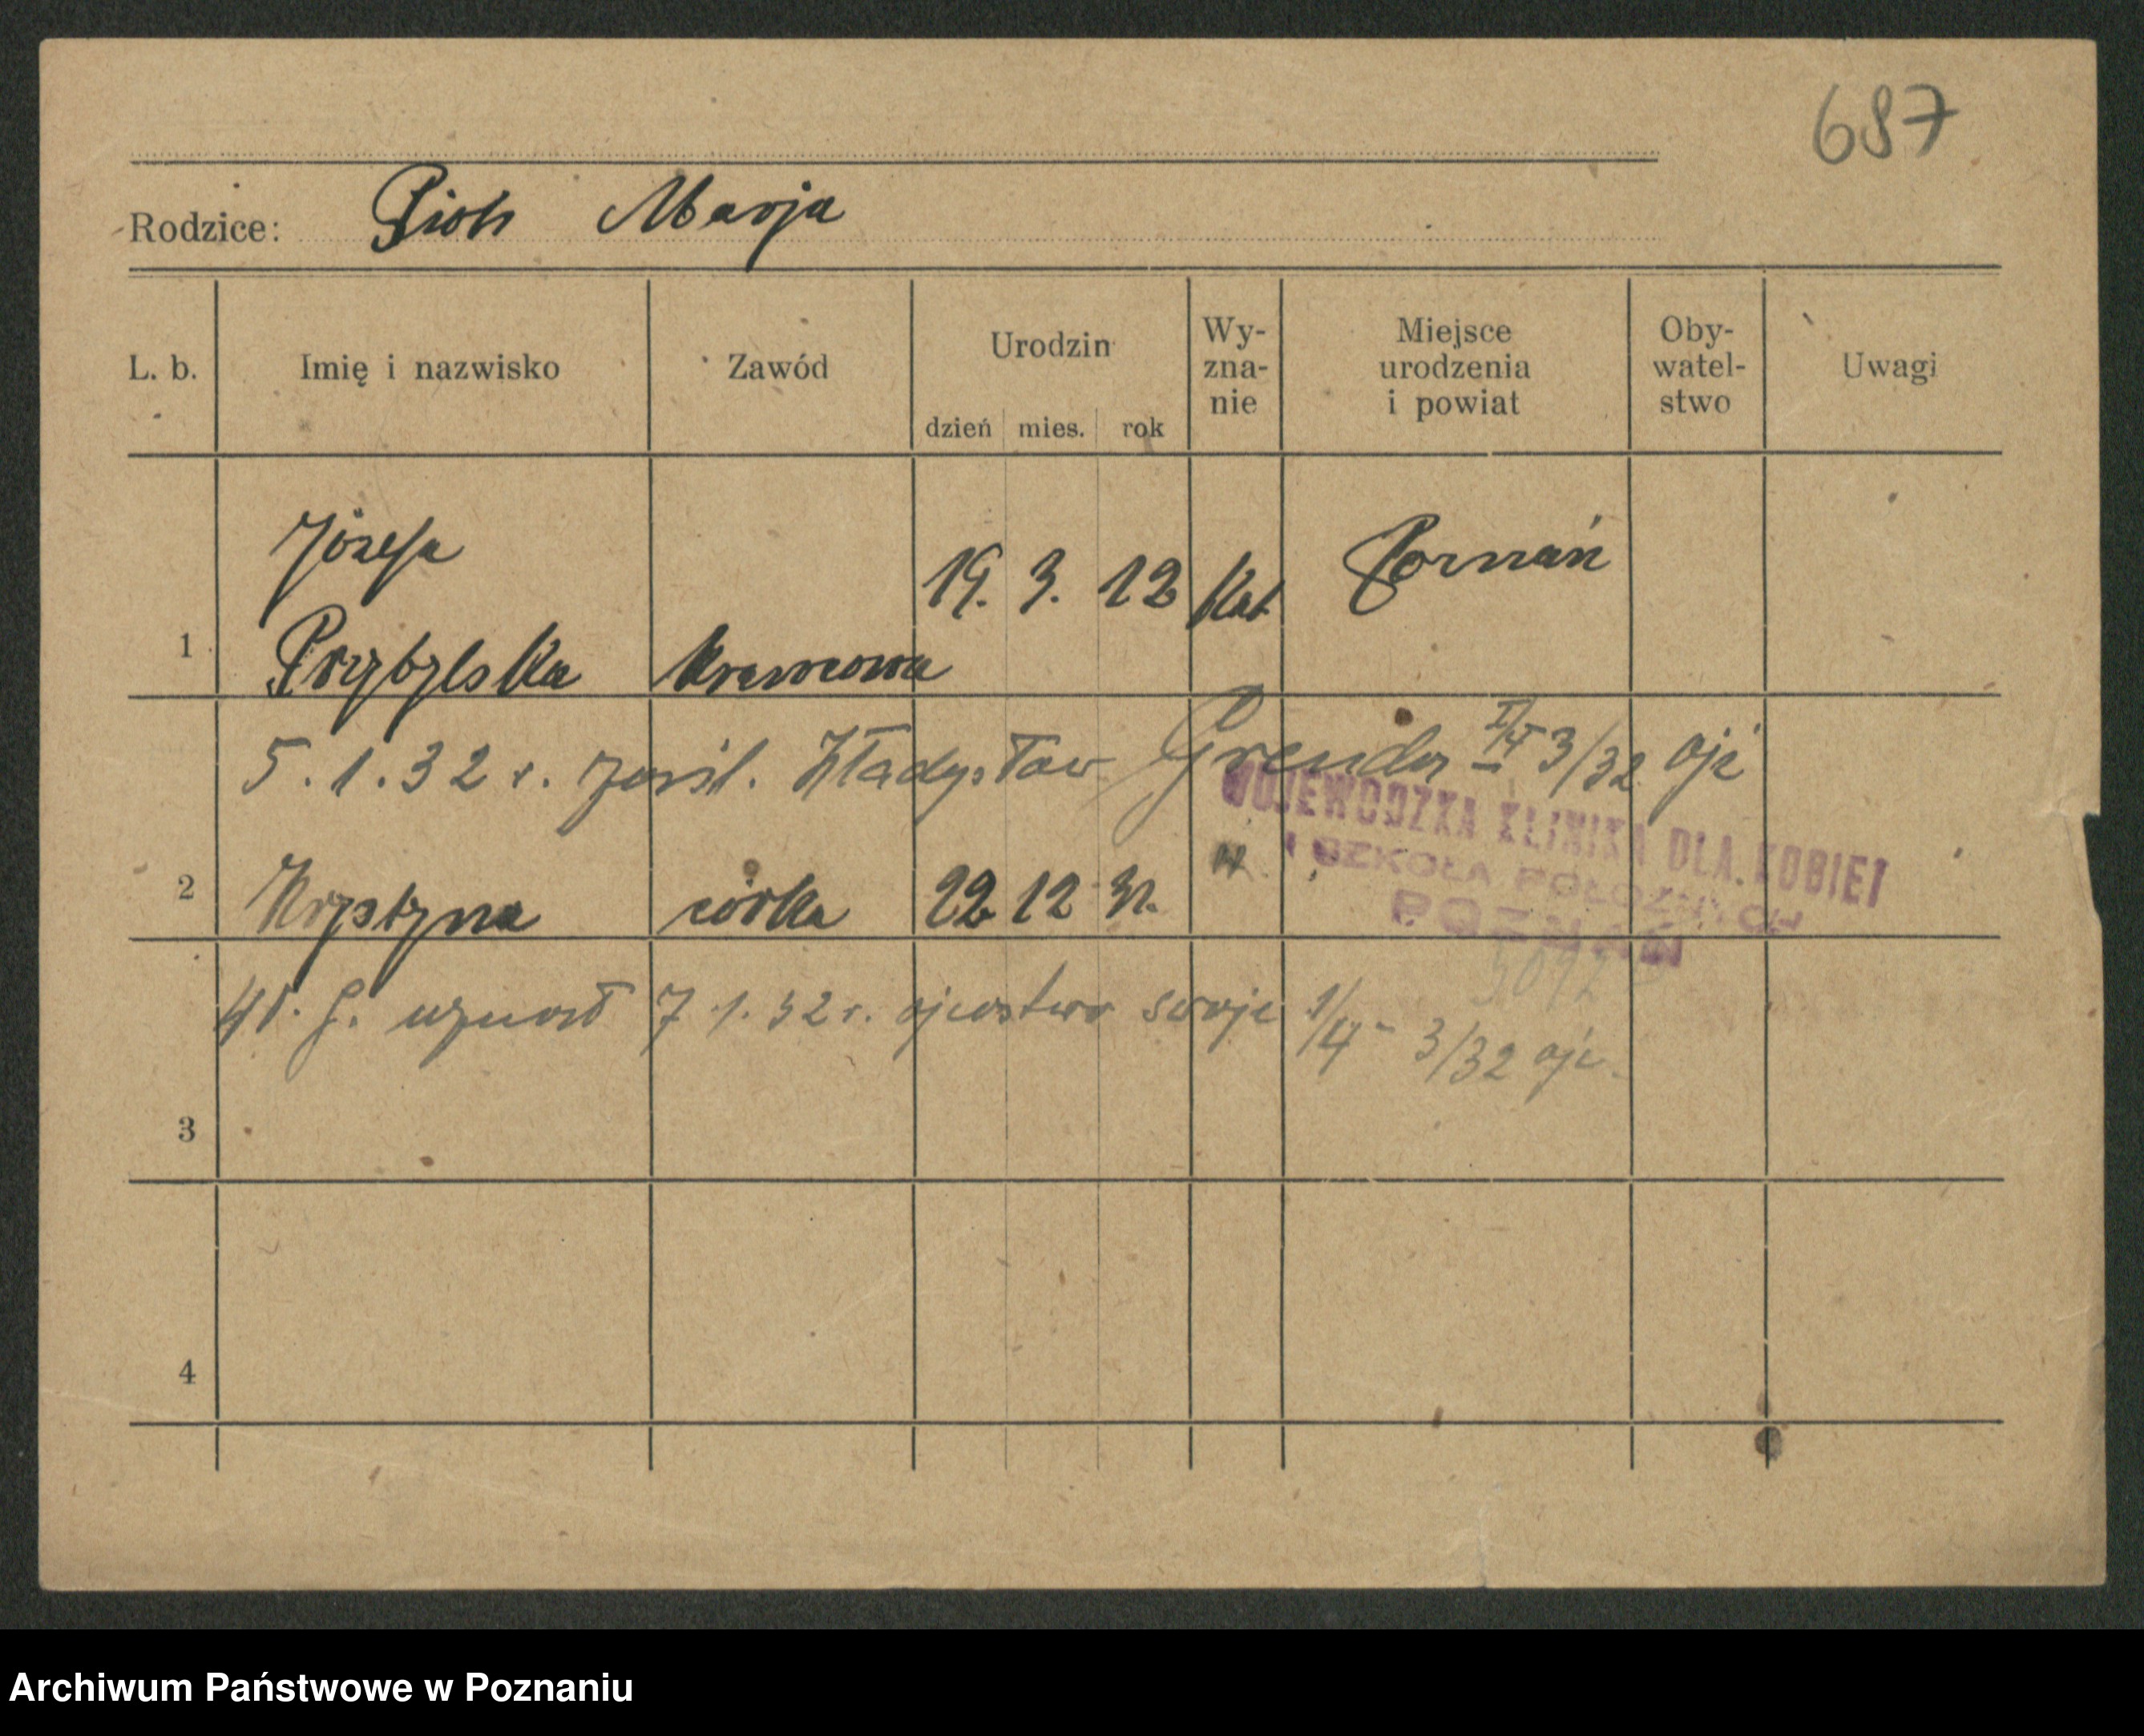 687
Rodzice: Piotr Marja
L. b. Imię i nazwisko Zawód Urodzin dzień mies. rok Wy-zna-nie Miejsce urodzenia i powiat Oby-watel-stwo Uwagi
Józefa
19. 3. 12 Kat Poznań
1 Przybylska krawcowa
5.1.32 r. Władysław Grenda 3/32 ojc
WOJEWÓDZKA KLINIKA DLA KOBIET
I SZKOŁA POŁOŻNYCH
POZNAŃ
2 Krystyna córka 22 12 31.
W. G. uznał 7 1.32 r. ojcostwo swoje 1/4 - 3/32 ojc.
3
4
Archiwum Państwowe w Poznaniu